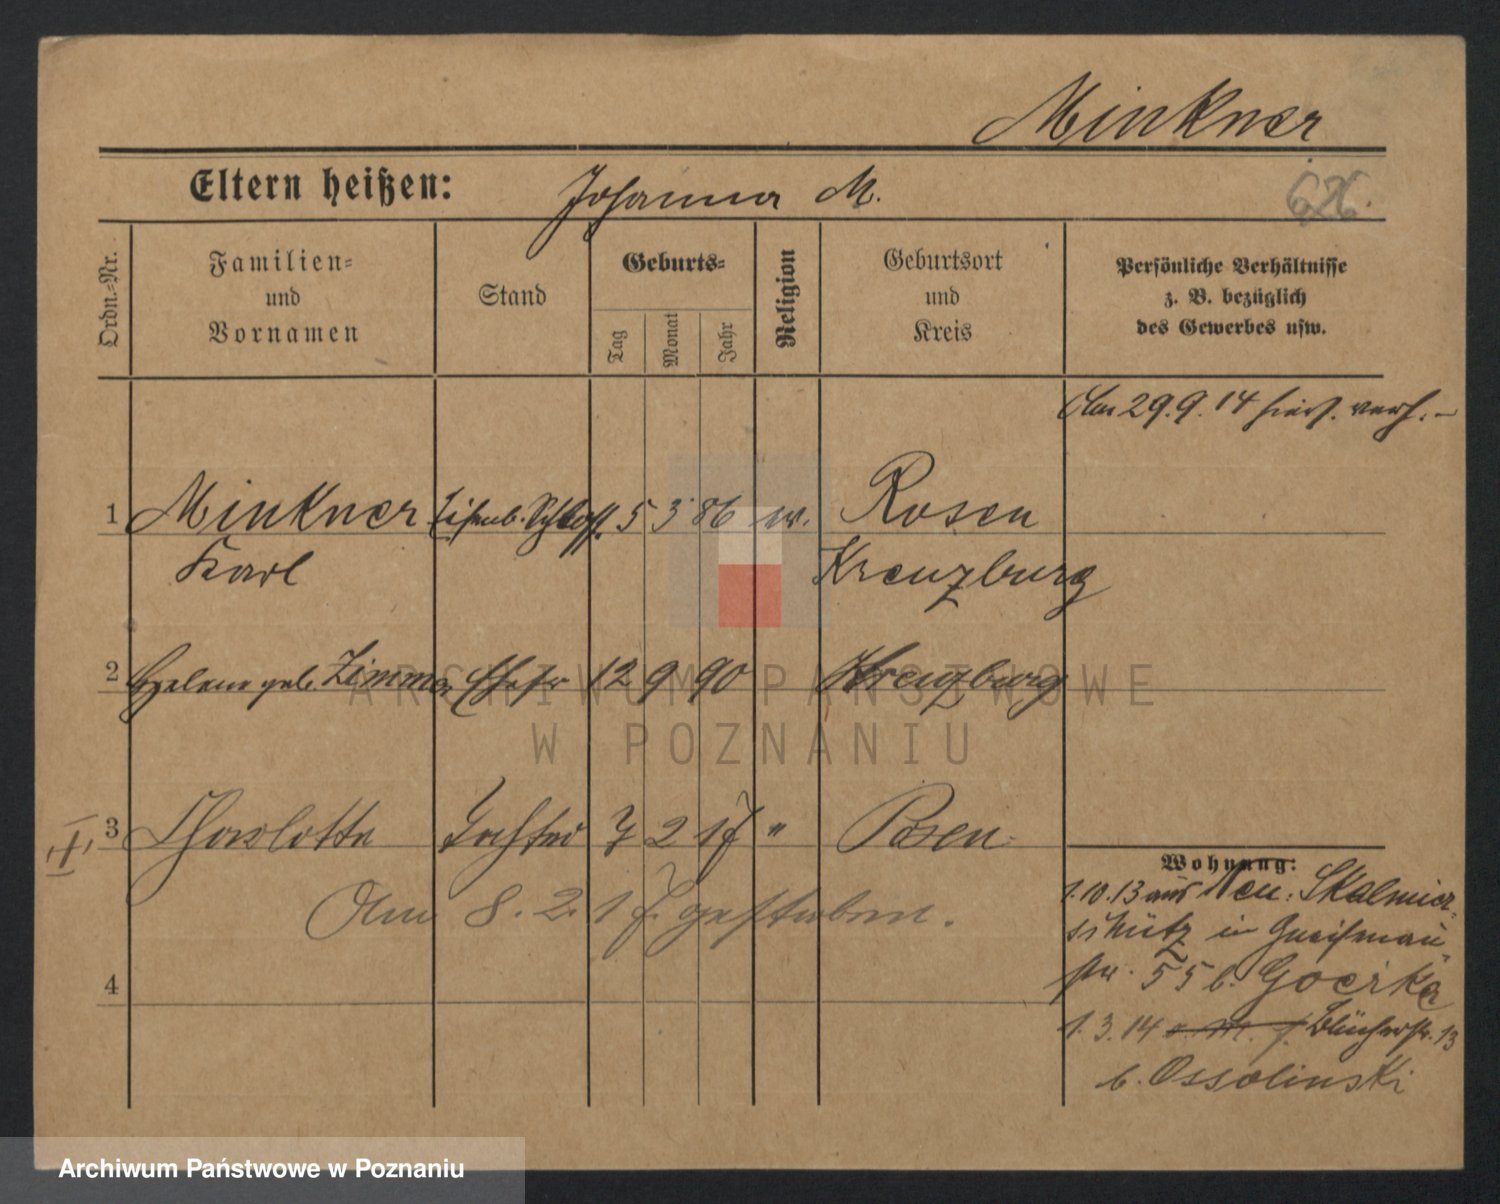 Minkner
Eltern heißen: Johanna M.
Ordn.-Nr.
Familien-
und
Vornamen
Stand
Geburts-
Tag
Monat
Jahr
Religion
Geburtsort
und
Kreis
Persönliche Verhältnisse
z. B. bezüglich
des Gewerbes usw.
Am 29.9.14 hiers. verh. –
1 Minkner Eisenb. Schloss. 5 3 86 ev. Rosen
Karl Kreuzburg
2 Helene geb. Zimmer Ehefr 12 9 90 Kreuzburg
3 Charlotte Tochter 7 2 17 " Posen
Am 8. 2. 17 gestorben.
4
Wohnung:
1.10.13 aus Neu-Skalmier-
schütz in Gneisenau
str. 55 b. Goerka
1.3.14 Blücherstr. 13
b. Ossolinski
ARCHIWUM PAŃSTWOWE
W POZNANIU
Archiwum Państwowe w Poznaniu